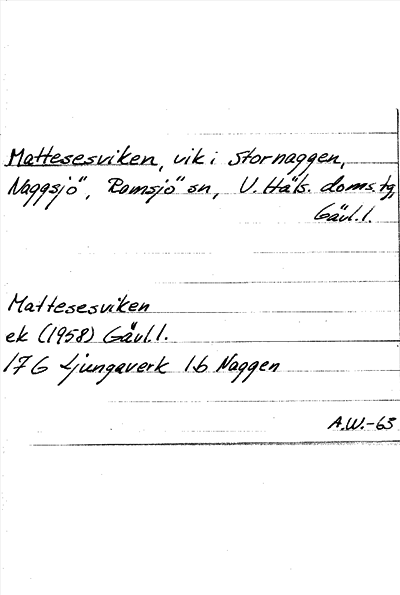 Mattesesviken, vik i Stornaggen,
Naggsjö, Ramsjö sn, V. Häls. doms.tg,
Gävl.l.
Mattesesviken
ek (1958) Gävl.l.
17G Ljungaverk 1b Naggen
A.W.-63